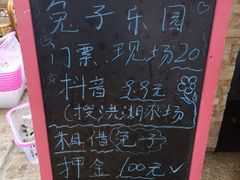 兔子乐园
门票、现场20
抖音 9.9元
(搜洪湘农场
租借兔子
押金100元✓